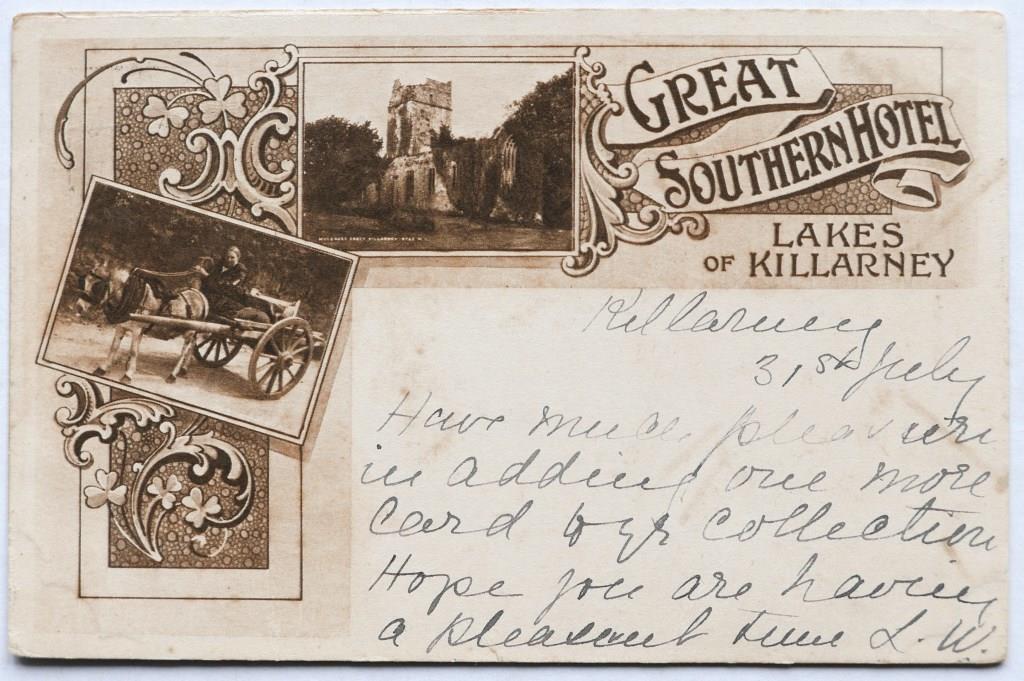 GREAT
SOUTHERN HOTEL
LAKES
OF KILLARNEY
MUCKROSS ABBEY KILLARNEY
Killarney
31st July
Have much pleasure
in adding one more
Card to yr collection
Hope you are having
a pleasant time L.W.